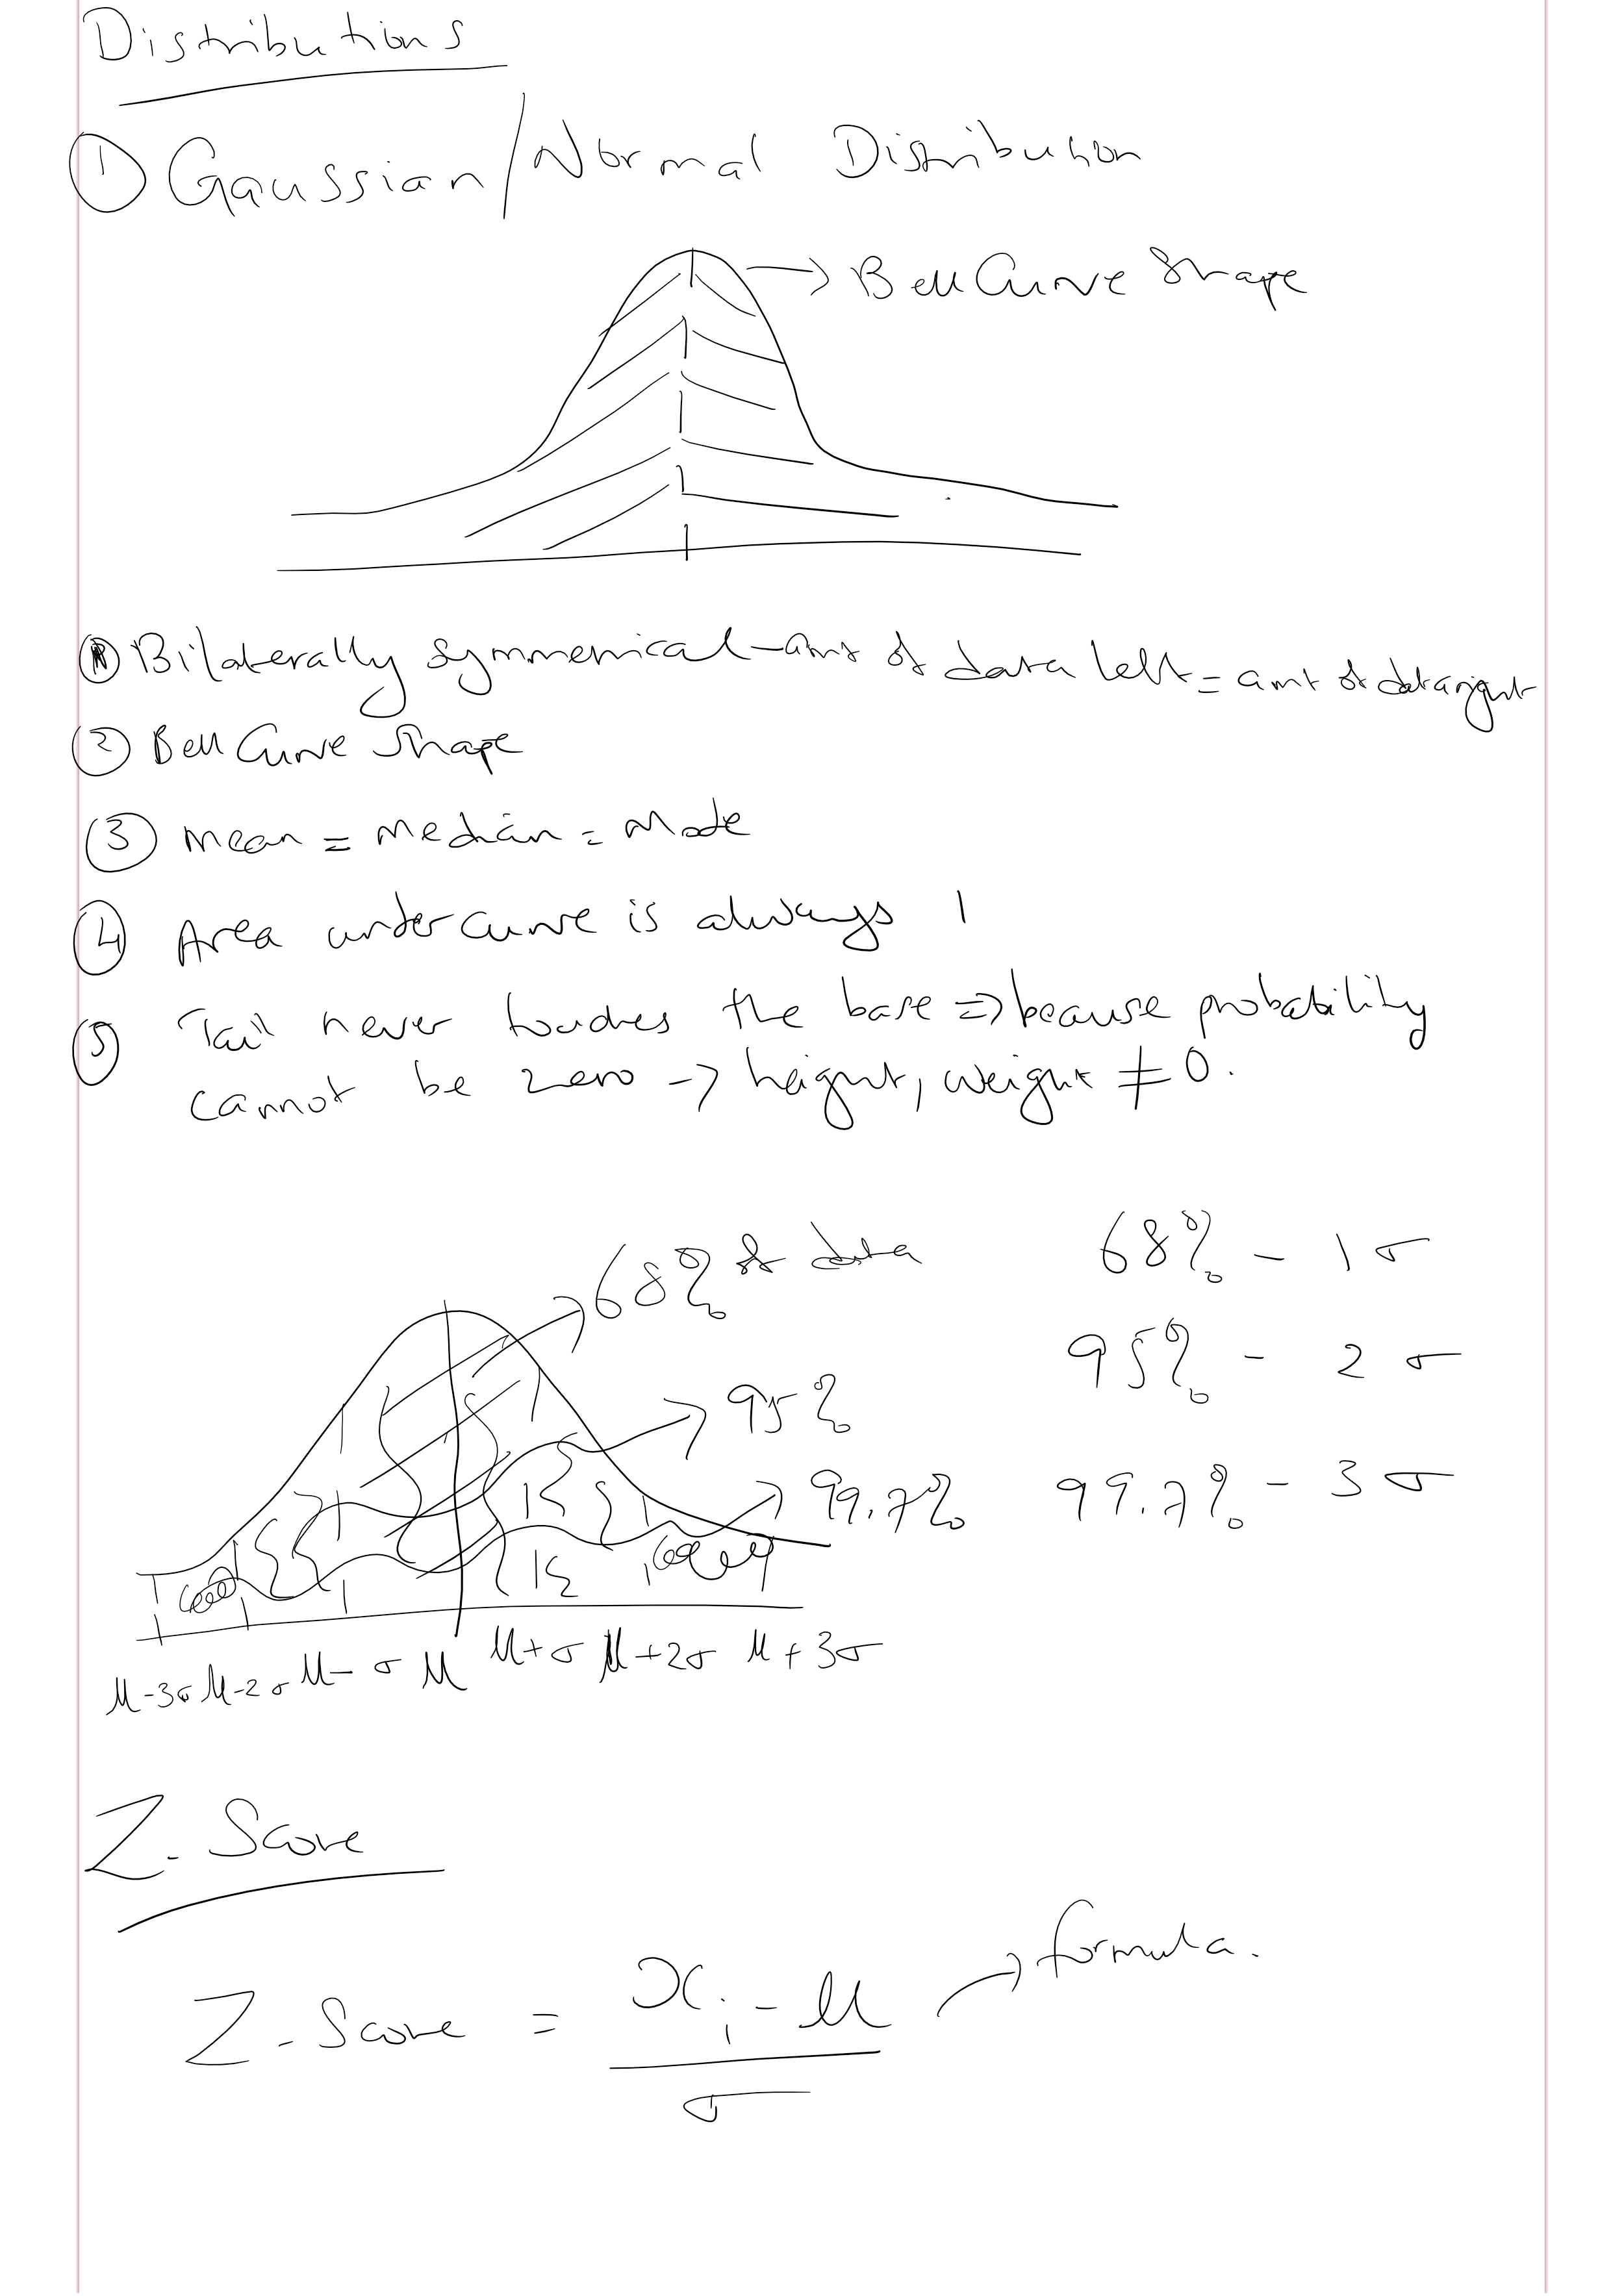 Distributions
① Gaussian/Normal Distribution
→ Bell Curve Shape
① Bilaterally symmetrical - amt of data left = amt of data right
② Bell Curve Shape
③ Mean = Median = Mode
④ Area under curve is always 1
⑤ Tail never touches the base ⇒ because probability
cannot be zero → height, weight ≠ 0.
→ 68% of data
68% - 1σ
→ 95%
95% - 2σ
→ 99.7%
99.7% - 3σ
μ-3σ μ-2σ μ-σ μ μ+σ μ+2σ μ+3σ
Z-Score
Z-Score = (xᵢ - μ) / σ → formula.